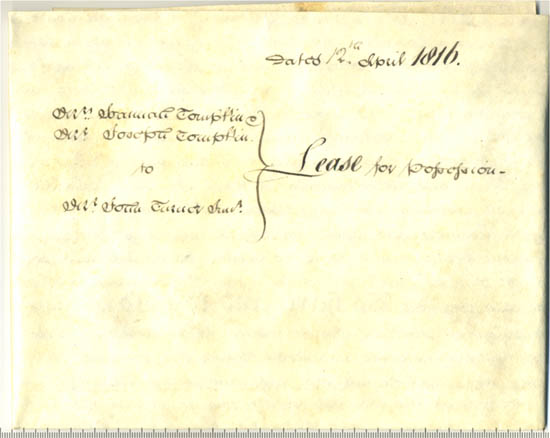 Dated 12th April 1816.
Mrs. Hannah Tompkin &
Mr. Joseph Tompkin
to
Mr. John Turner Junr.
Lease for Possession